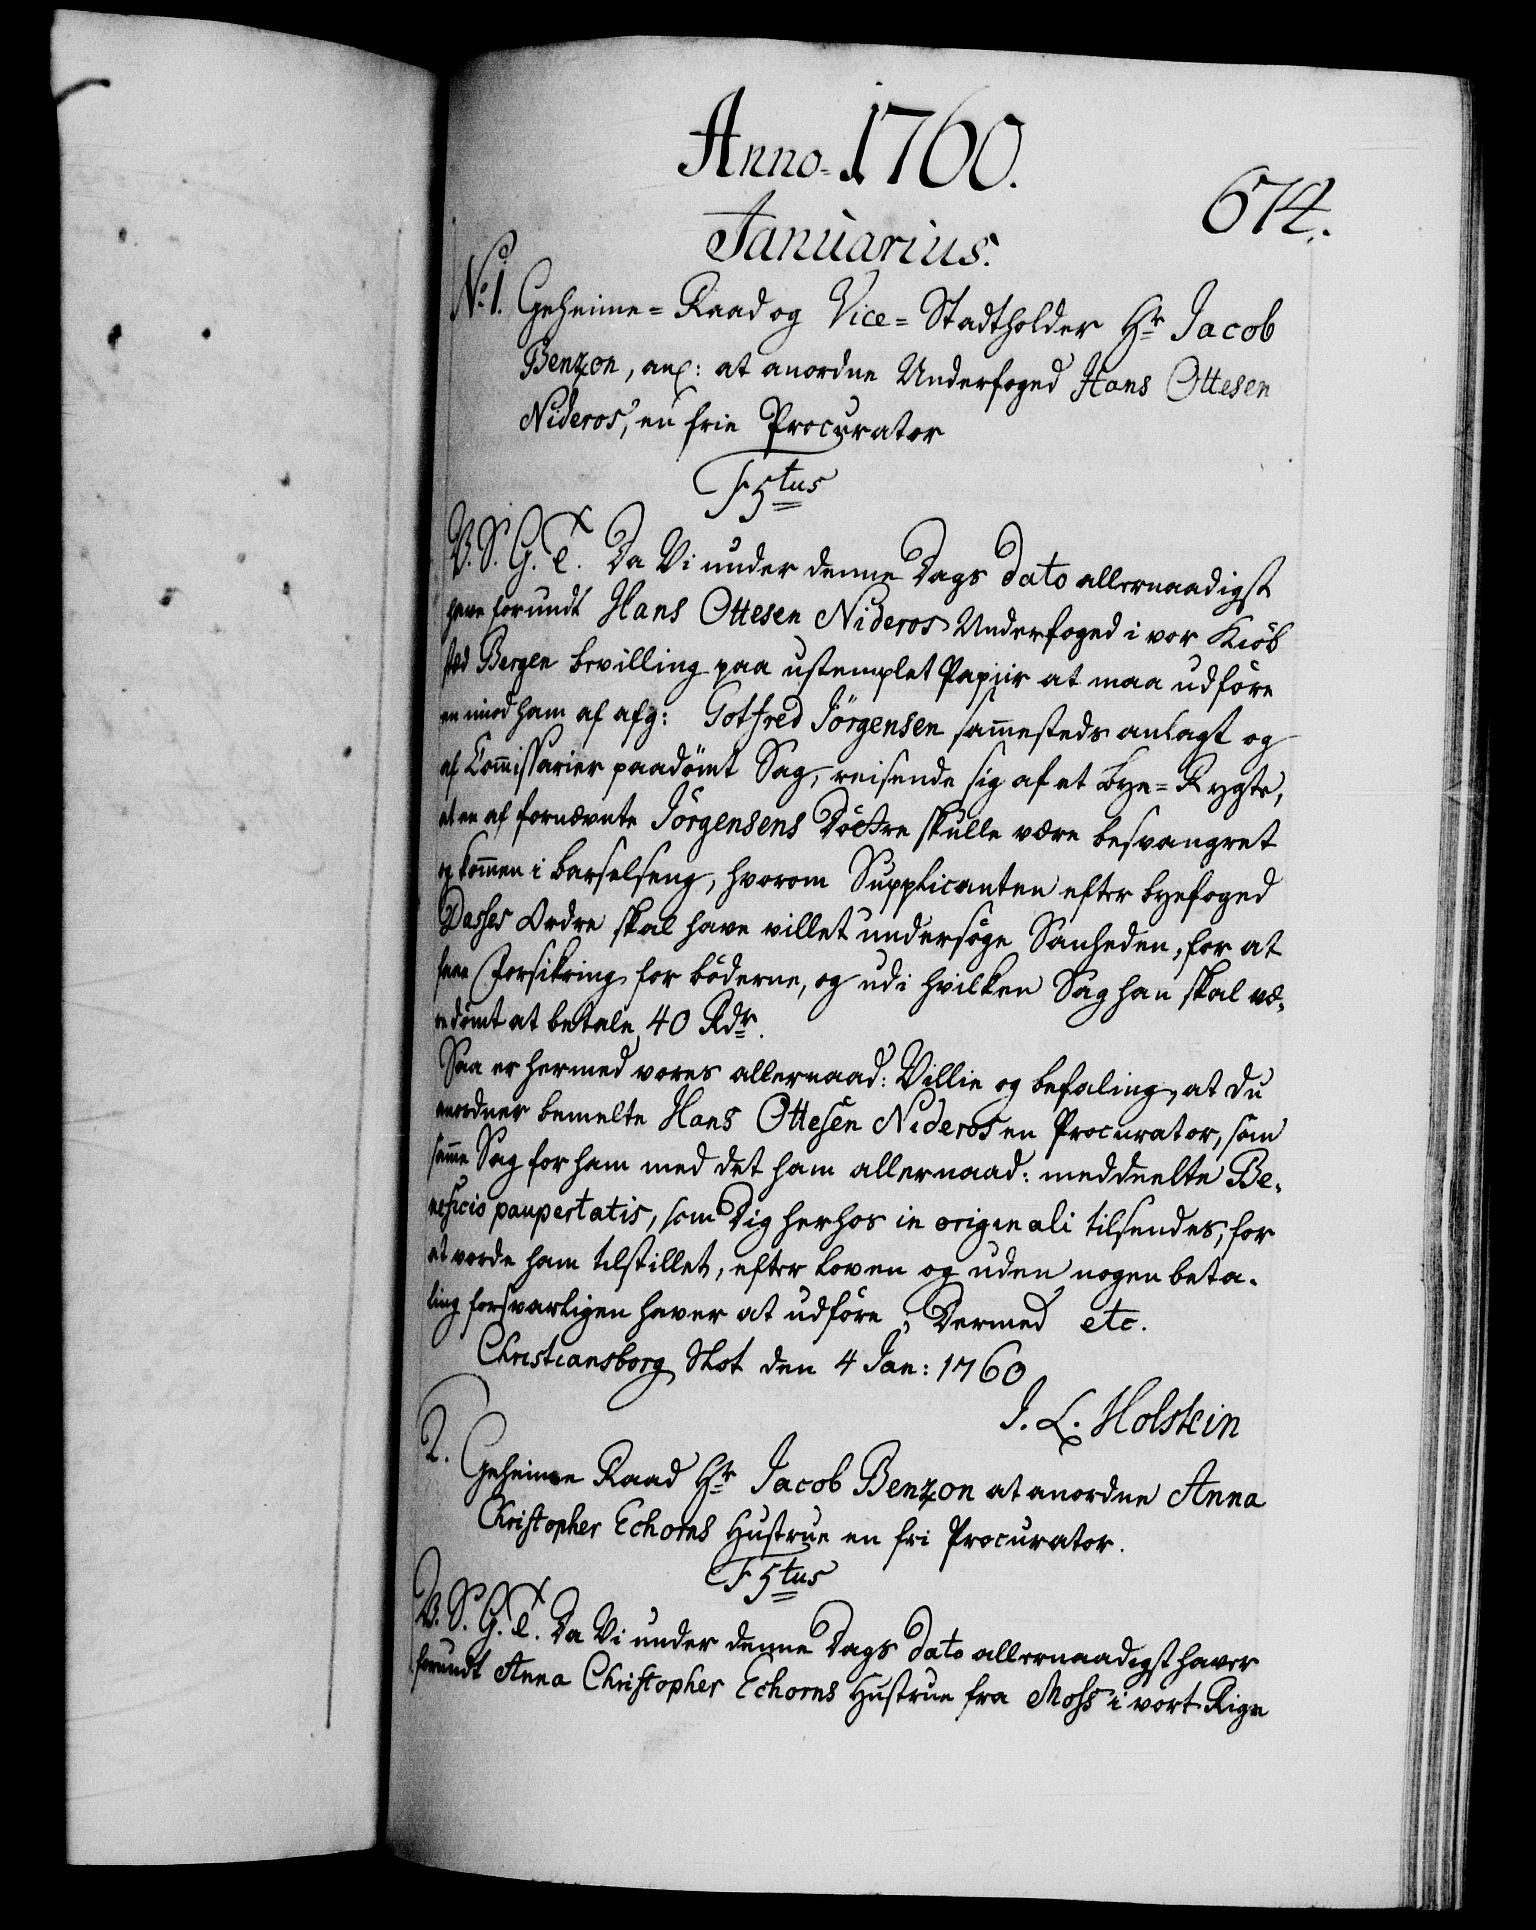 Anno 1760.
674.
Januarius.
No 1. Geheime-Raad og Vice-Stadtholder Hr Jacob
Benzon, anl: at anordne Underfoged Hans Ottesen
Nideros, en frie Procurator
F 5tus
V. S. G. T. Da Vi under denne Dags Dato allernaadigst
have forundt Hans Ottesen Nideros Underfoged i vor Kiöb
stæd Bergen bevilling paa ustemplet Papiir at maa udföre
en imod ham af afg: Gotfred Jörgensen sam̄esteds anlagt og
af Com̄issarier paadömt Sag, reisende sig af et Bye-Rygte,
at en af fornævnte Jörgensens Döttre skulle være besvangret
og kom̄en i barselseng, hvorom Supplicanten efter byefoged
Dasses Ordre skal have villet undersöge Sanheden, for at
faae Forsikring for böderne, og udi hvilken Sag han skal væ-
re dömt at betale 40 Rdr.
Saa er hermed vores allernaad: Villie og befaling, at du
anordner bemelte Hans Ottesen Nideros en Procurator, som
sam̄e Sag for ham med det ham allernaad: meddeelte Be-
neficio paupertatis, som Dig herhos in originali tilsendes, for
at vorde ham tilstillet, efter loven og uden nogen beta-
ling forsvarligen haver at udföre; Dermed etc.
Christiansborg Slot den 4 Jan: 1760
J. L. Holstein
2. Geheime Raad Hr Jacob Benzon at anordne Anna
Christopher Echorns Hustrue en fri Procurator.
F 5tus
V. S. G. T. Da Vi under denne Dags Dato allernaadigst haver
forundt Anna Christopher Echorns Hustrue fra Moss i vort Rige